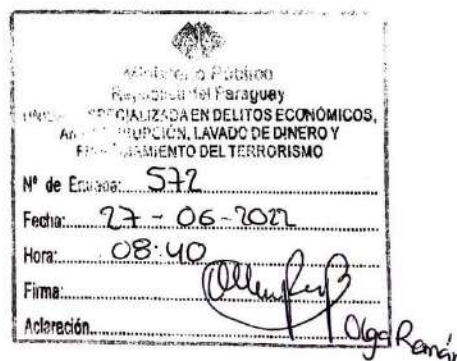 Ministerio Público
República del Paraguay
ESPECIALIZADA EN DELITOS ECONÓMICOS,
LAVADO DE DINERO Y
DEL TERRORISMO
Nº de Entrada: 572
Fecha: 27-06-2022
Hora: 08:40
Firma:
Aclaración: Olga Román